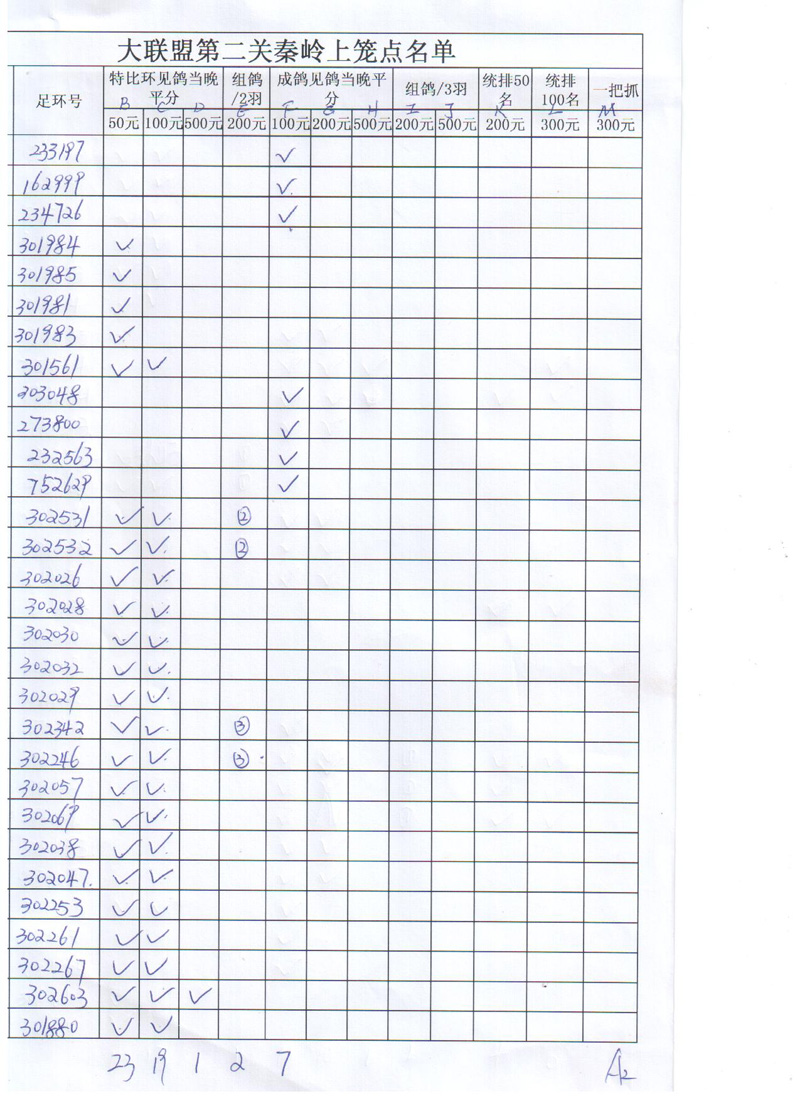 大联盟第二关秦岭上笼点名单
足环号 特比环见鸽当晚平分 组鸽/2羽 成鸽见鸽当晚平分 组鸽/3羽 统排50名 统排100名 一把抓
B C D E F G H I J K L M
50元 100元 500元 200元 100元 200元 500元 200元 500元 200元 300元 300元
233197 ✓
162999 ✓
234726 ✓
301984 ✓
301985 ✓
301981 ✓
301983 ✓
301561 ✓ ✓
203048 ✓
273800 ✓
232563 ✓
752629 ✓
302531 ✓ ✓ ②
302532 ✓ ✓ ②
302026 ✓ ✓
302028 ✓ ✓
302030 ✓ ✓
302032 ✓ ✓
302029 ✓ ✓
302342 ✓ ✓ ③
302246 ✓ ✓ ③
302057 ✓ ✓
302069 ✓ ✓
302038 ✓ ✓
302047. ✓ ✓
302253 ✓ ✓
302261 ✓ ✓
302267 ✓ ✓
302603 ✓ ✓ ✓
301880 ✓ ✓
23 19 1 2 7 A2